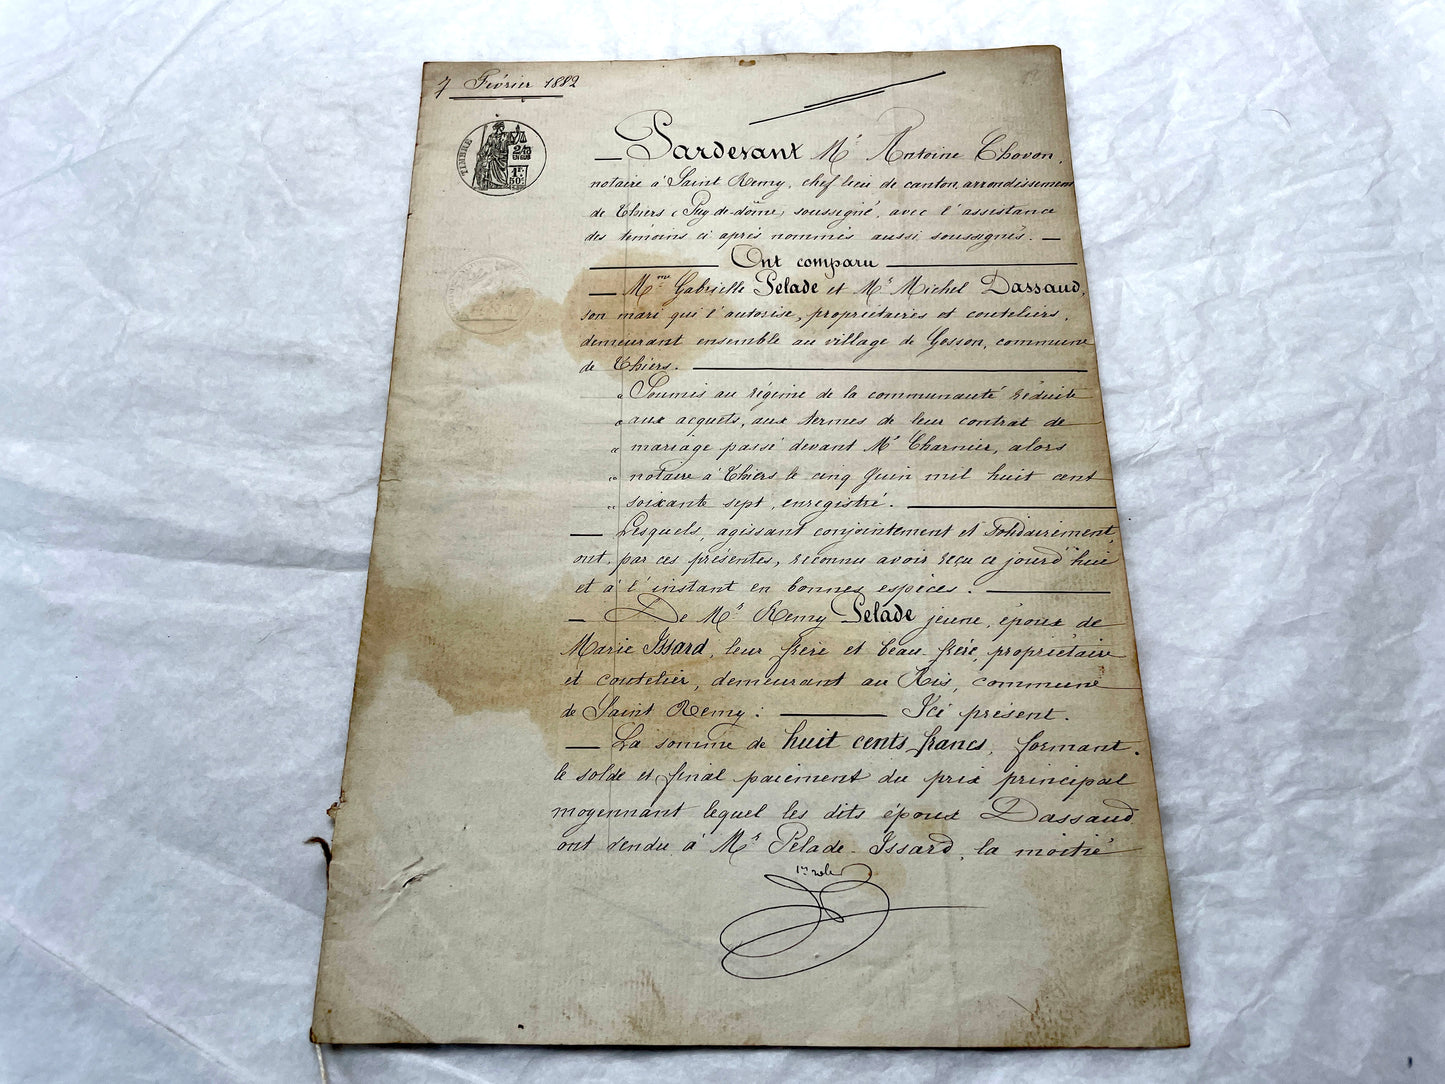 7 Février 1882
TIMBRE
2/10 EN SUS
1F. 50c
Pardevant Me Antoine Chovon,
notaire à Saint Remy, chef lieu de canton, arrondissement
de Thiers (Puy-de-dôme) soussigné, avec l'assistance
des témoins ci après nommés aussi soussignés. —
Ont comparu
— Mme Gabrielle Pelade et Mr Michel Dassaud,
son mari qui l'autorise, propriétaires et couteliers,
demeurant ensemble au village de Cosson, commune
de Thiers.
« Soumis au régime de la communauté réduite
« aux acquets, aux termes de leur contrat de
« mariage passé devant Me Charnier, alors
« notaire à Thiers le cinq Juin mil huit cent
« soixante sept, enregistré.
— Lesquels, agissant conjointement et Solidairement,
ont, par ces présentes, reconnu avoir reçu ce jourd'hui
et à l'instant en bonnes espèces.
— De Mr Remy Pelade jeune, époux de
Marie Issard, leur frère et beau-frère, propriétaire
et coutelier, demeurant au Ris, commune
de Saint Remy: Ici présent.
— La somme de huit cents francs, formant
le solde et final paiement du prix principal
moyennant lequel les dits époux Dassaud
ont vendu à Mr Pelade-Issard, la moitié
1er rôle